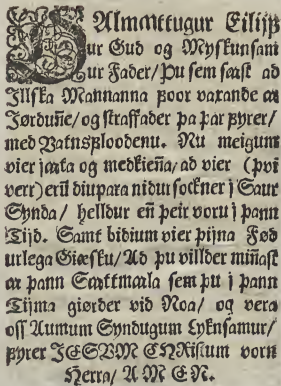 O Almꜳttugur Eilijf
ur Gud og Myskunsam
ur Fader/ Þu sem sꜳst ad
Jllska Mannanna þoor vaxande ꜳ
Jørduñe/ og straffader þa þar fyrer/
med Vatnsfloodenu. Nu meigum
vier jꜳta og medkieña/ ad vier (þvi
verr) erū diupara nidur sockner j Saur
Synda/ helldur eñ þeir voru j þann
Tijd. Samt bidium vier þijna Fød
urlega Giæsku/ Ad þu villder miñast
ꜳ þann Sꜳttmꜳla sem þu j þann
Tijma giørder vid Noa/ og vera
oss Aumum Syndugum Lyknsamur/
fyrer JESVM CHRistum vorn
Herra/ A M E N.